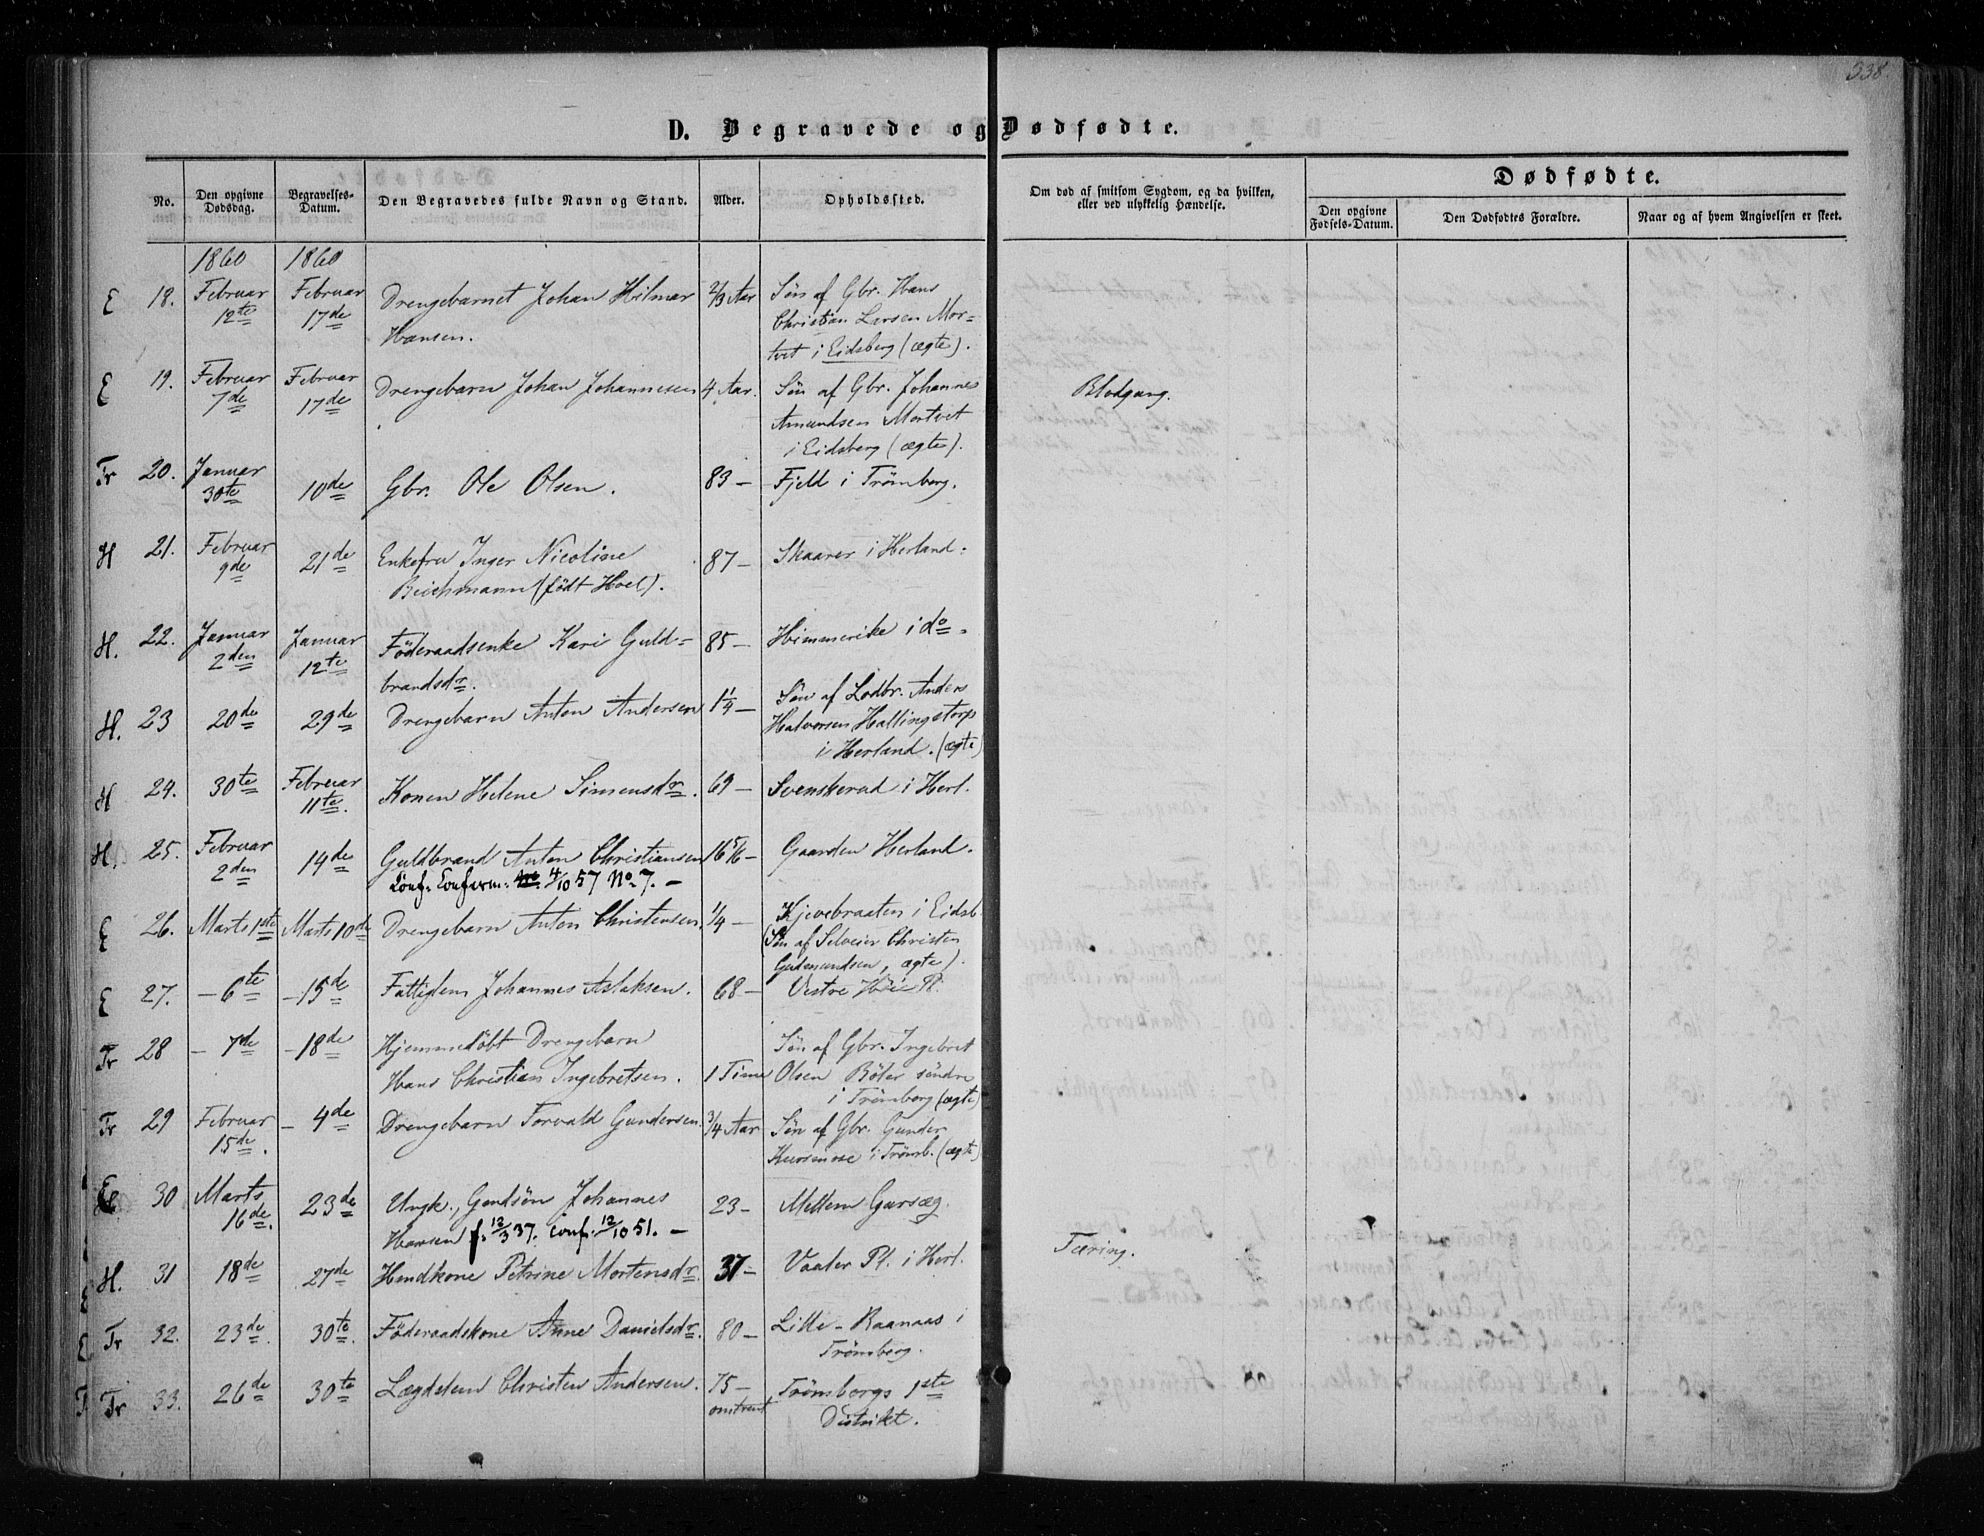 338.
D. Begravede og Dødfødte.
No. Den opgivne Dødsdag. Begravelses-Datum. Den Begravedes fulde Navn og Stand. Alder. Opholdssted. Om død af smitsom Sygdom, og da hvilken, eller ved ulykkelig Hændelse. Dødfødte.
Den opgivne Fødsels-Datum. Den Dødfødtes Forældre. Naar og af hvem Angivelsen er skeet.
1860 1860
E 18. Februar 12te Februar 17de Drengebarnet Johan Hilmar 2/3 Aar Søn af Gbr. Hans
Hansen. Christian Larsen Mor-
tvet i Eidsberg (ægte).
E 19. Februar 7de Februar 17de Drengebarn Johan Johannesen 4 Aar. Søn af Gbr. Johannes Blodgang.
Amundsen Mortvet
i Eidsberg (ægte).
Tr 20. Januar 30te 10de Gbr. Ole Olsen. 83 — Fjeld i Trømberg.
H 21. Februar 9de 21de Enkefru Inger Nicoline 87 — Skaarer i Herland.
(født Hoel).
H. 22. Januar 2den Januar 12te Föderaadsenke Kari Guld- 85 — Himmerike i do.
brandsdr.
H. 23 20de 29de Drengebarn Anton Andersen 1 1/4 — Søn af Lodbr. Anders
Halvorsen Hallingstorp
i Herland. (ægte)
H 24. 30te Februar 11te. Konen Helene Simensdr. 69 — Svenskerud i Herl.
H. 25. Februar 2den 14de Guldbrand Anton Christiansen 16 5/6 — Gaarden Herland.
Conf. Conferm: 4/10 57 No. 7. —
E 26. Marts 1ste Marts 10de Drengebarn Anton Christensen. 1/4 — Kjevebraaten i Eidsb.
(Søn af Selveier Christen
Gudmundsen, ægte).
E 27. — 6te — 15de Fattiglem Johannes Aslaksen. 68 — Vestre Pl.
Tr 28 — 7de — 18de Hjemmedøbt Drengebarn Søn af Gbr. Ingebret
Hans Christian Ingebretsen. 1 Time Olsen Böler söndre
i Trømberg (ægte)
Tr 29 Februar 15de. — 4de Drengebarn Torvald Gundersen. 3/4 Aar Søn af Gbr. Gunder
i Trømb. (ægte)
E 30 Marts 16de. 23de Ungk., Gaardsøn Johannes 23 — Mellem Garsæg.
Hansen f. 12/3 37. conf. 12/10 51. —
H. 31 18de 27de Huuskone Petrine Mortensdr. 37 — Vaaler Pl. i Herl. Tæring.
Tr 32. 23de. 30te. Föderaadskone Anne Danielsdr. 80 — Lille-Raanaas i
Trømberg.
Tr 33. 26de 30te Lægdslem Christen Andersen. 75 — Trømborgs 1ste
omtrent Distrikt.